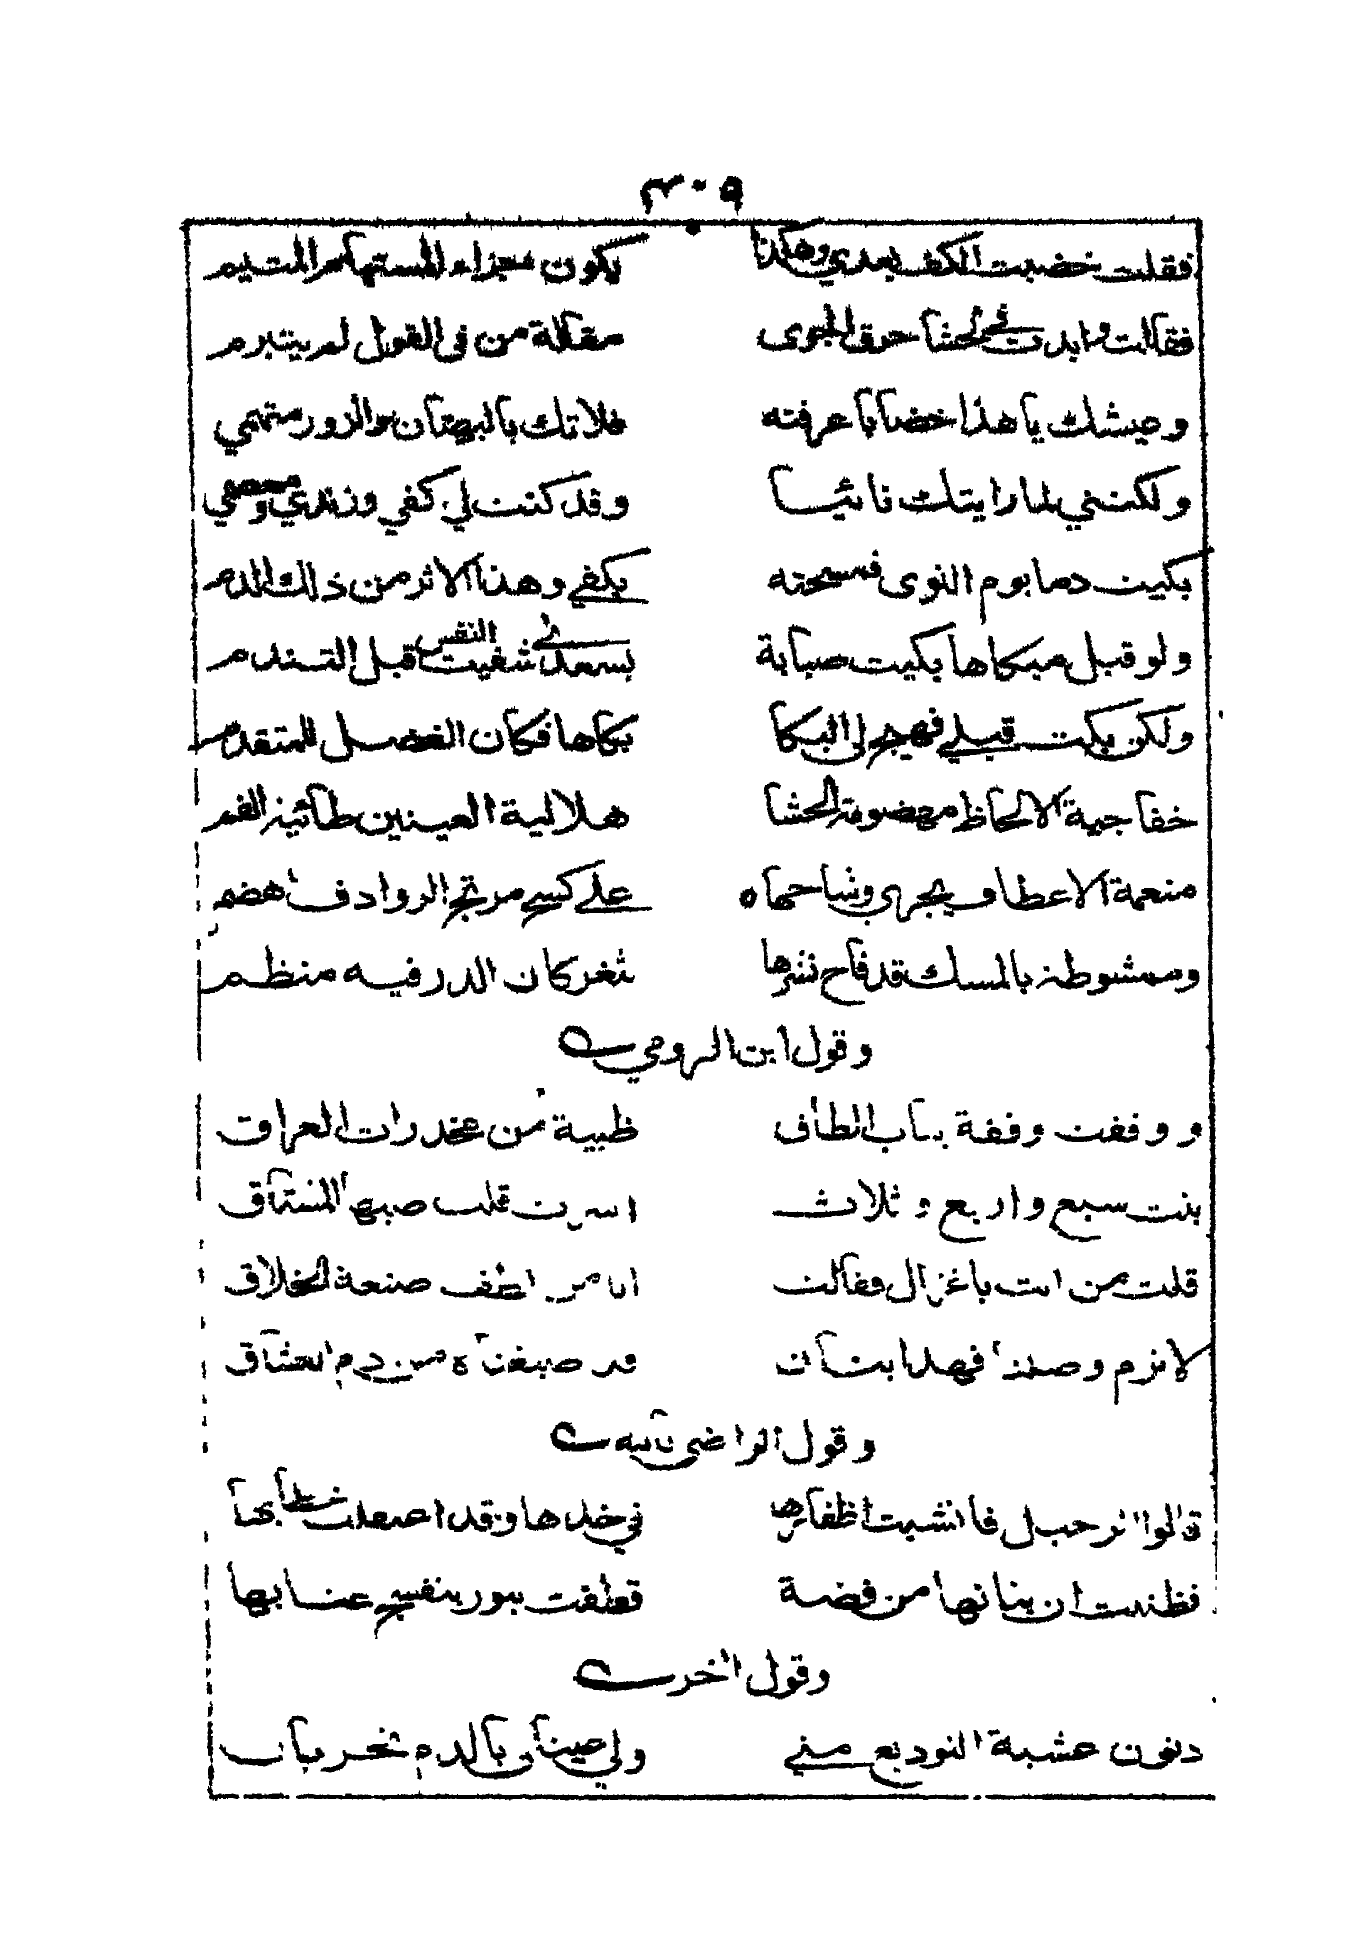 ٣٠٩
فقلت خضبت الكف بعدي وهكذا يكون جزاء المستهام المتيم
فقالت وابدت في الحشا حرق الجوى مقالة من في القول لم يتبرم
وعيشك يا هذا خضابا عرفته فلا تك بالبهتان والزور متهمي
ولكنني لما رايتك نائيا وقد كنت لي كفي وزندي ومعصمي
بكيت دما يوم النوى فمسحته بكفي وهذا الاثر من ذلك الدم
ولو قبل مبكاها بكيت صبابة بسعدى شفيت النفس قبل التندم
ولكن بكت قبلي فهيج لي البكا بكاها فكان الفضل للمتقدم
خفاجية الالحاظ مهضومة الحشا هلالية العينين طائية الفم
منعمة الاعطاف يجري وشاحها على كشح مرتج الروادف اهضم
وممشوطة بالمسك قد فاح نشرها بثغر كان الدر فيه منظم
وقول ابن الرومي
ووقفت وقفة بباب الطاف ظبية من مخدرات العراق
بنت سبع واربع وثلاث اسرت قلب صبها المشتاق
قلت من انت يا غزال فقالت انا من لطف صنعة الخلاق
لا ترم وصلنا فهذا بنان قد صبغناه من دم العشاق
وقول الراضي بالله
قالوا الرحيل فانشبت اظفارها في خدها وقد اعتقلت خطابها
فظننت ان بنانها من فضة قطفت بنور بنفسج عنابها
وقول اخر
دنون عشية التوديع مني ولي عينان بالدم تجريان